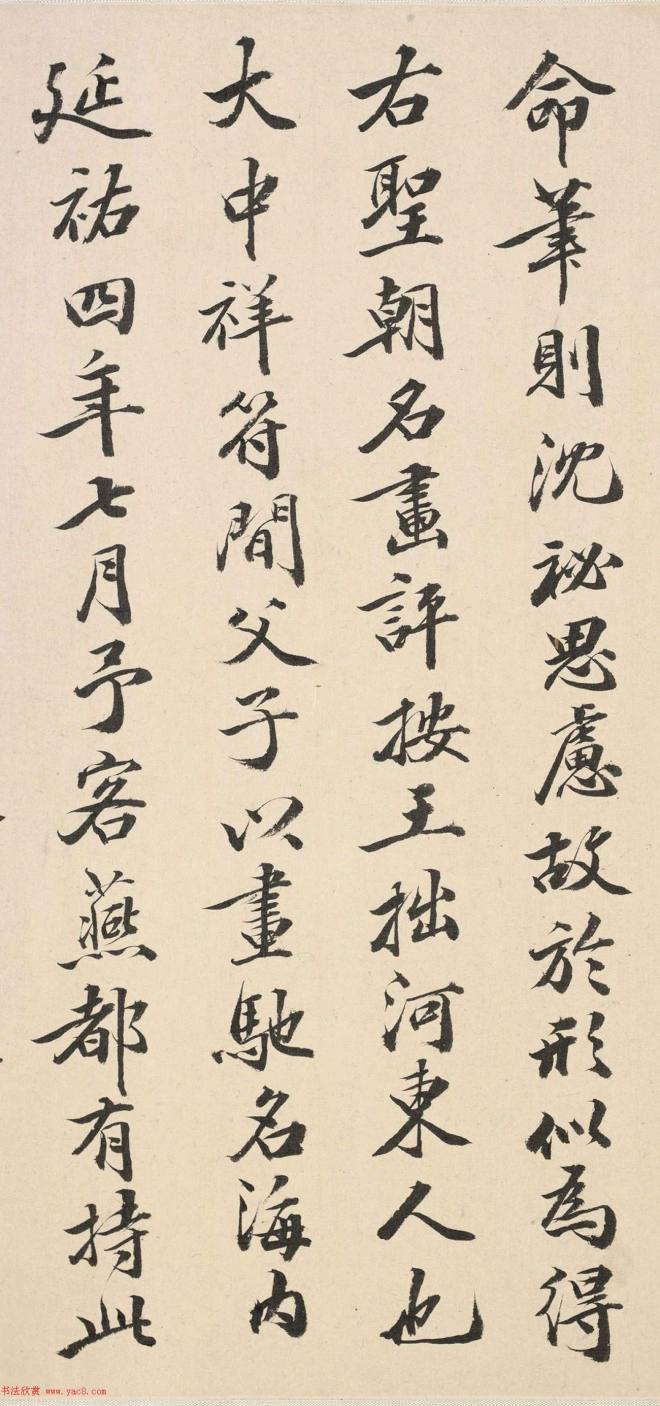 命筆則沈祕思慮故於形似為得
右聖朝名畫評按王拙河東人也
大中祥符間父子以畫馳名海内
延祐四年七月予客燕都有持此
书法欣赏 www.yac8.com